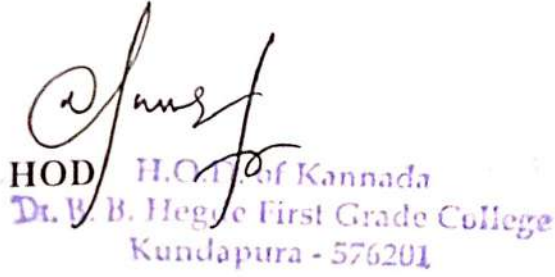 HOD H.O.D. of Kannada
Dr. B. B. Hegde First Grade College
Kundapura - 576201